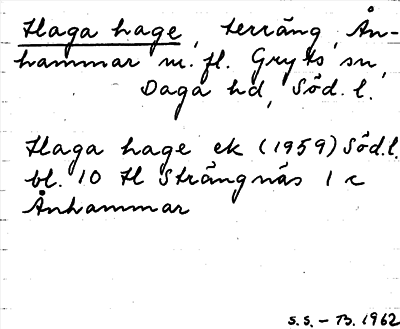 Haga hage, terräng, Ån-
hammar m. fl. Gryts sn,
Daga hd, Söd. l.
Haga hage ek (1959) Söd.l.
bl. 10 H Strängnäs 1 c
Ånhammar
S.S. - B. 1962